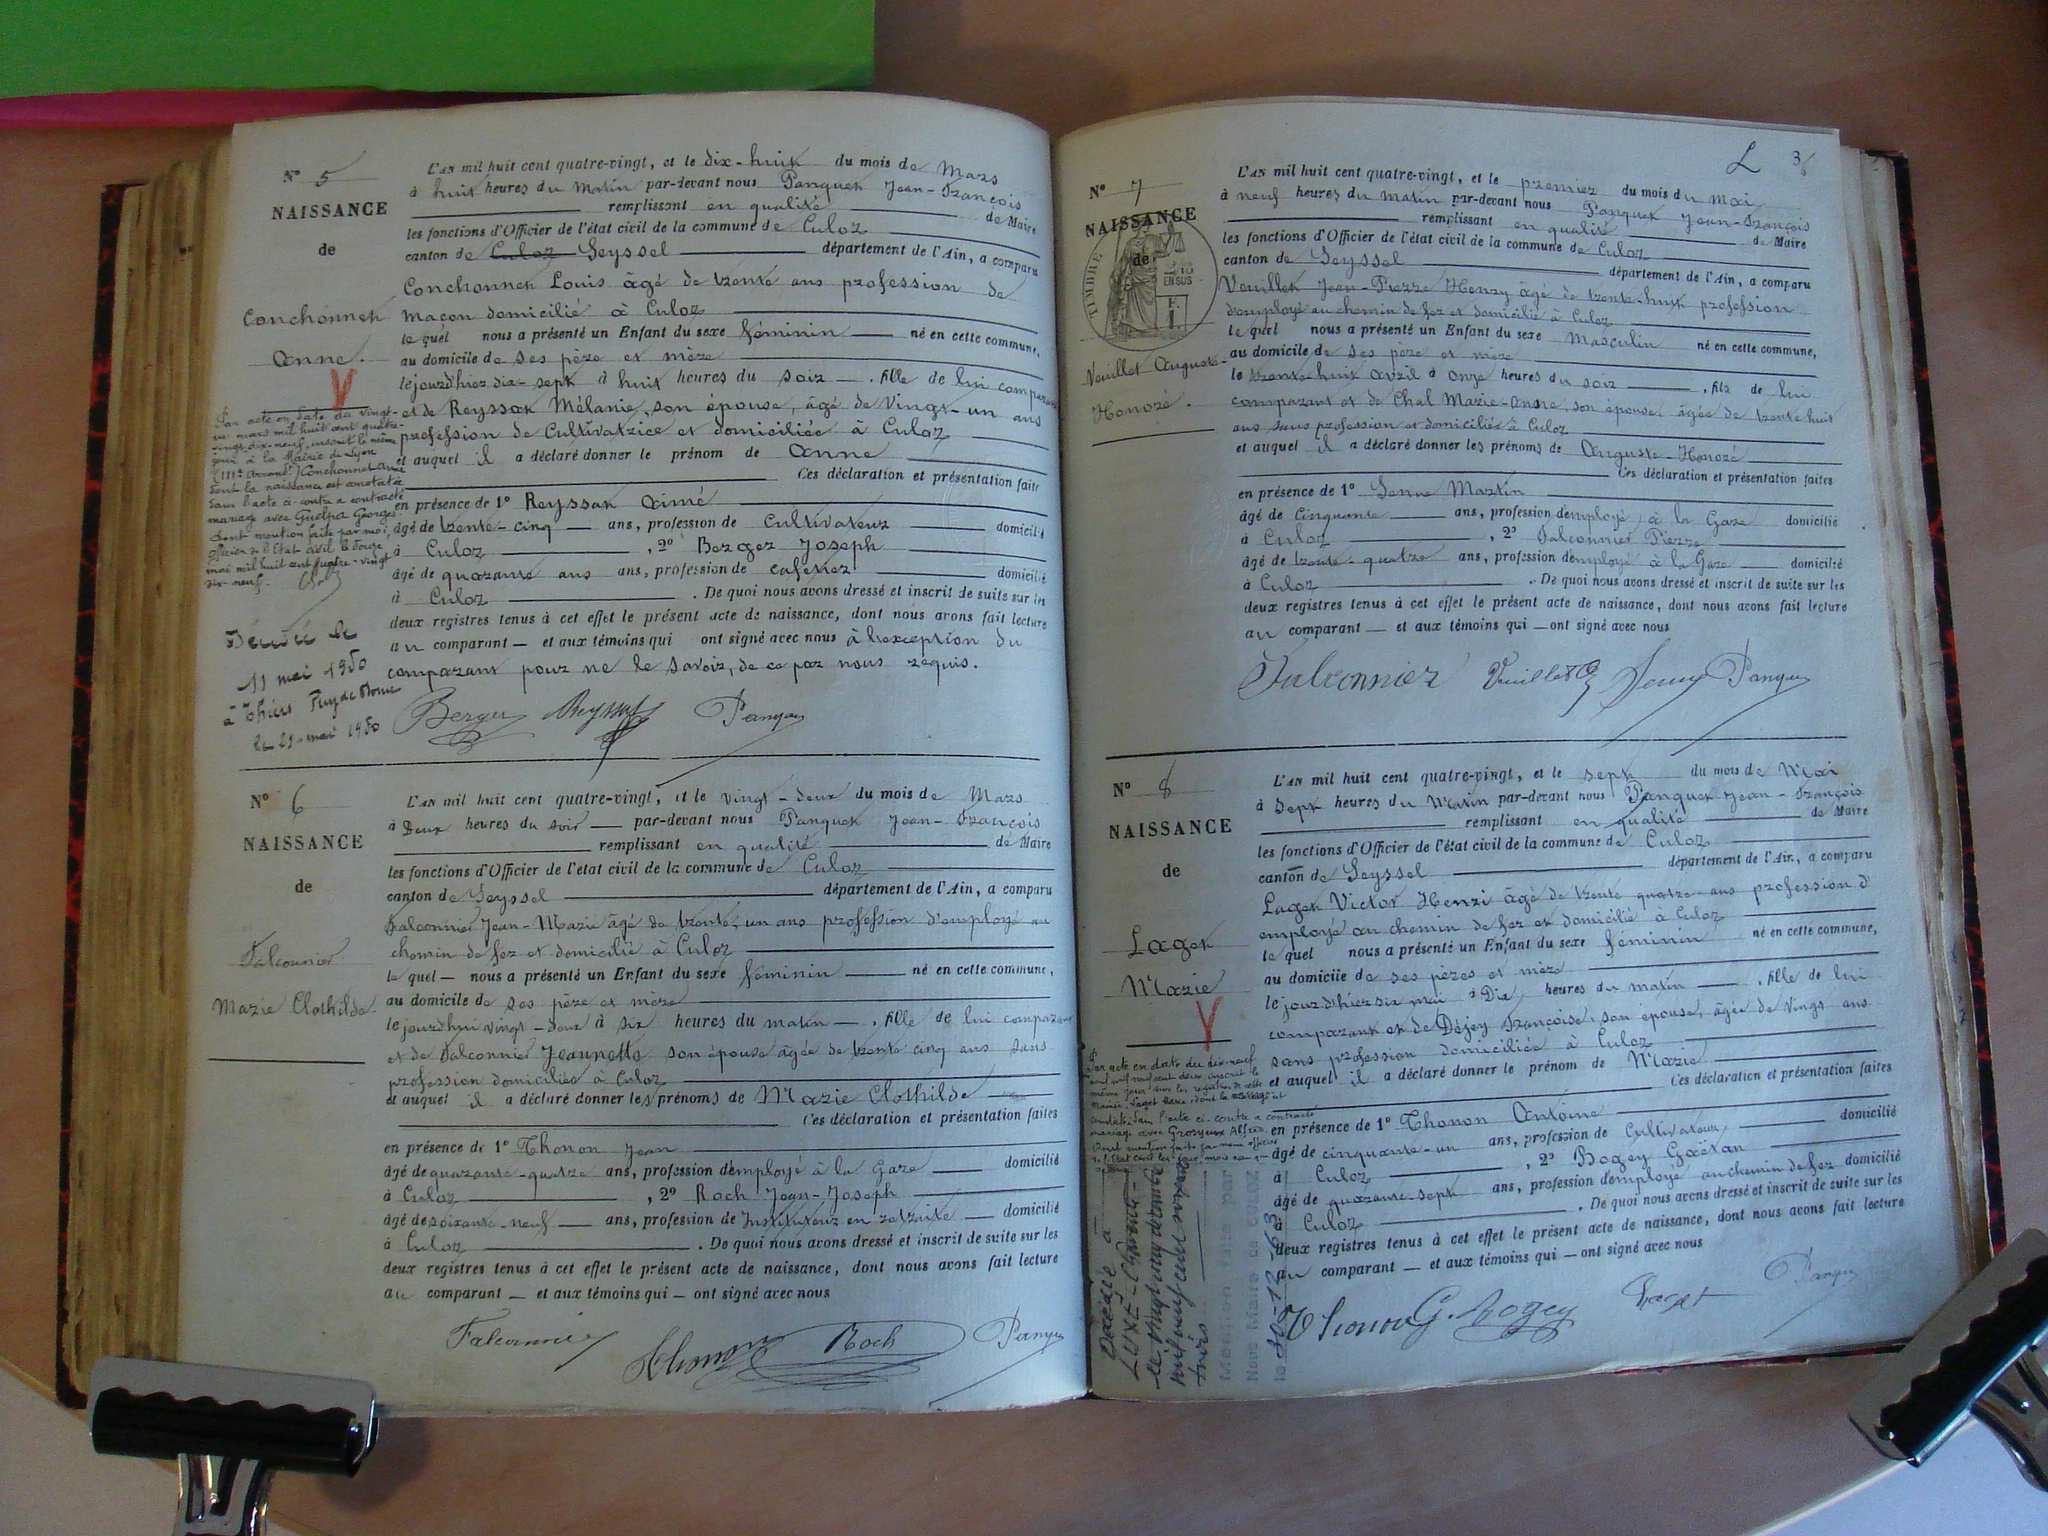 N° 5
NAISSANCE
de
Conchonnet
Anne.
L'AN mil huit cent quatre-vingt, et le dix-huit du mois de Mars
à huit heures du Matin par-devant nous Panquet Jean-François
remplissant en qualité de Maire
les fonctions d'Officier de l'état civil de la commune de Culoz
canton de Culoz Seyssel département de l'Ain, a comparu
Conchonnet Louis âgé de trente ans profession de
maçon domicilié à Culoz
le quel nous a présenté un Enfant du sexe féminin né en cette commune,
au domicile de ses père et mère
le jourd'hier dix-sept à huit heures du soir, fille de lui comparant
et de Reyssat Mélanie, son épouse, âgé de Vingt-un ans
profession de Cultivatrice et domiciliée à Culoz
et auquel il a déclaré donner le prénom de Anne
Ces déclaration et présentation faite
en présence de 1° Reyssat Aimé
âgé de trente-cinq ans, profession de Cultivateur domicilié
à Culoz, 2° Berger Joseph
âgé de quarante ans ans, profession de cafetier domicilié
à Culoz. De quoi nous avons dressé et inscrit de suite sur les
deux registres tenus à cet effet le présent acte de naissance, dont nous avons fait lecture
au comparant et aux témoins qui ont signé avec nous à l'exception du
comparant pour ne le savoir, de ce par nous requis.
Berger Reyssat Panquet
Par acte en date du vingt-
un mars mil huit cent quatre-
vingt-dix-neuf, inscrit le même
jour à la Mairie de Lyon
(III° Arrondt) Conchonnet Anne
dont la naissance est constatée
dans l'acte ci-contre a contracté
mariage avec Guelpa Georges
dont mention faite par moi,
officier de l'Etat civil le douze
mai mil huit cent quatre-vingt
dix-neuf.
Décédée le
11 mai 1950
à Thiers Puy de Dôme
le 21 mai 1950
N° 6
NAISSANCE
de
Falconnier
Marie Clothilde.
L'AN mil huit cent quatre-vingt, et le vingt-deux du mois de Mars
à Deux heures du soir par-devant nous Panquet Jean-François
remplissant en qualité de Maire
les fonctions d'Officier de l'état civil de la commune de Culoz
canton de Seyssel département de l'Ain, a comparu
Falconnier Jean-Marie âgé de trente-un ans profession d'employé au
chemin de fer et domicilié à Culoz
le quel nous a présenté un Enfant du sexe féminin né en cette commune,
au domicile de ses père et mère
le jourd'hui vingt-deux à six heures du matin, fille de lui comparant
et de Falconnier Jeannette son épouse âgée de trente cinq ans sans
profession domiciliée à Culoz
et auquel il a déclaré donner les prénoms de Marie Clothilde
Ces déclaration et présentation faites
en présence de 1° Thonon Jean
âgé de quarante-quatre ans, profession d'employé à la Gare domicilié
à Culoz, 2° Roch Jean-Joseph
âgé de soixante-neuf ans, profession de Instituteur en retraite domicilié
à Culoz. De quoi nous avons dressé et inscrit de suite sur les
deux registres tenus à cet effet le présent acte de naissance, dont nous avons fait lecture
au comparant et aux témoins qui ont signé avec nous
Falconnier Thonon Roch Panquet
L 3
N° 7
NAISSANCE
de
TIMBRE
EN SUS
Veuillet Auguste-
Honoré.
L'AN mil huit cent quatre-vingt, et le premier du mois du Mai
à neuf heures du Matin par-devant nous Panquet Jean-François
remplissant en qualité de Maire
les fonctions d'Officier de l'état civil de la commune de Culoz
canton de Seyssel département de l'Ain, a comparu
Veuillet Jean-Pierre Henry âgé de trente-huit profession
d'employé au chemin de fer et domicilié à Culoz
le quel nous a présenté un Enfant du sexe Masculin né en cette commune,
au domicile de ses père et mère
le trente-huit avril à onze heures du soir, fils de lui
comparant et de Chal Marie-Anne, son épouse, âgée de trente huit
ans sans profession et domiciliée à Culoz
et auquel il a déclaré donner les prénoms de Auguste-Honoré
Ces déclaration et présentation faites
en présence de 1° Senne Martin
âgé de Cinquante ans, profession d'employé à la Gare domicilié
à Culoz, 2° Falconnier Pierre
âgé de trente-quatre ans, profession d'employé à la Gare domicilié
à Culoz. De quoi nous avons dressé et inscrit de suite sur les
deux registres tenus à cet effet le présent acte de naissance, dont nous avons fait lecture
au comparant et aux témoins qui ont signé avec nous
Falconnier Veuillet Senne Panquet
N° 8
NAISSANCE
de
Laget
Marie
L'AN mil huit cent quatre-vingt, et le sept du mois de Mai
à Sept heures du Matin par-devant nous Panquet Jean-François
remplissant en qualité de Maire
les fonctions d'Officier de l'état civil de la commune de Culoz
canton de Seyssel département de l'Ain, a comparu
Laget Victor Henri âgé de trente quatre ans profession d'
employé au chemin de fer et domicilié à Culoz
le quel nous a présenté un Enfant du sexe féminin né en cette commune,
au domicile de ses pères et mère
le jourd'hier six mai à Dix heures du matin, fille de lui
comparant et de Déjey Françoise, son épouse, âgée de vingt ans
sans profession domiciliée à Culoz
et auquel il a déclaré donner le prénom de Marie
Ces déclaration et présentation faites
en présence de 1° Thonon Antoine domicilié
âgé de cinquante-un ans, profession de Cultivateur
à Culoz, 2° Bogey Gaëtan
âgé de quarante-sept ans, profession d'employé au chemin de fer domicilié
à Culoz. De quoi nous avons dressé et inscrit de suite sur les
deux registres tenus à cet effet le présent acte de naissance, dont nous avons fait lecture
au comparant et aux témoins qui ont signé avec nous
Thonon G. Bogey Laget Panquet
Par acte en date du dix-neuf
mil neuf cent deux inscrit le
même jour sur les registres de cette
Mairie, Laget Marie, dont la naissance est
constatée dans l'acte ci-contre a contracté
mariage avec Grosjeux Alfred
Dont mention faite par nous officier
Décédée à
mil neuf cent soixante
trois
Mention faite par
Nous Maire de CULOZ
le 30-12-63